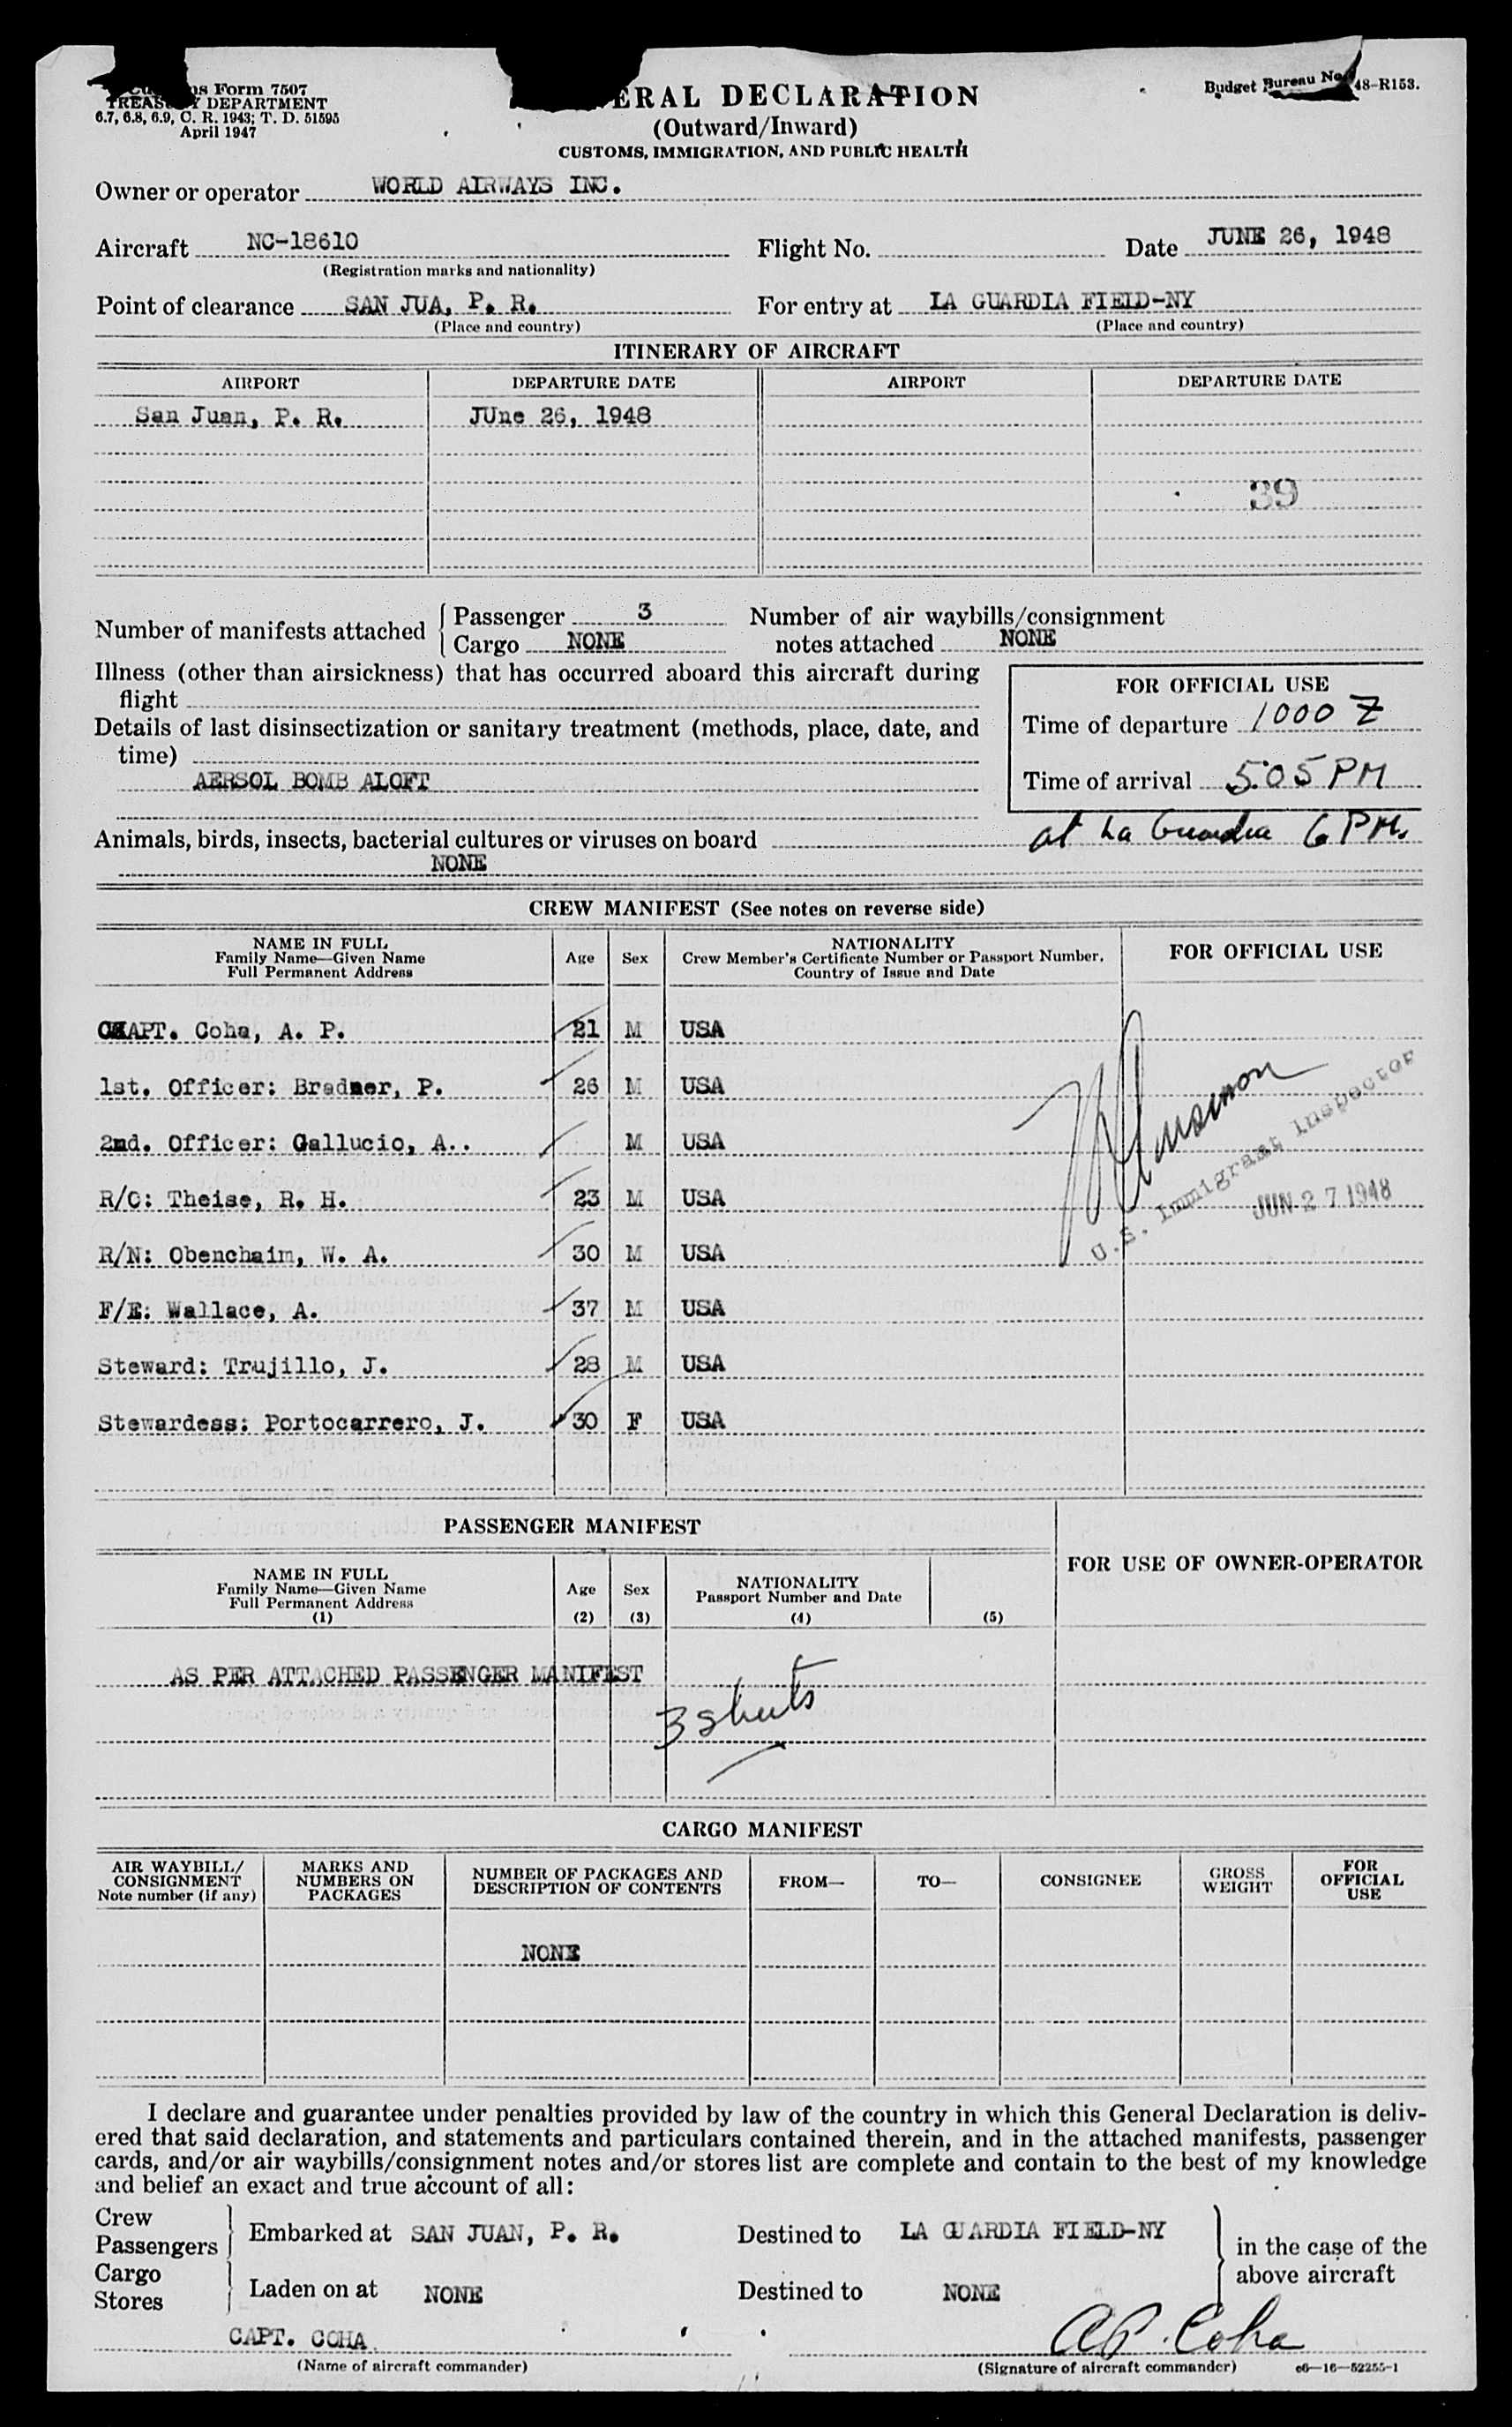 ns Form 7507
TREASURY DEPARTMENT
6.7, 6.8, 6.9, C. R. 1943; T. D. 51595
April 1947
ERAL DECLARATION
(Outward/Inward)
CUSTOMS, IMMIGRATION, AND PUBLIC HEALTH
Budget Bureau No. 48-R153.
Owner or operator WORLD AIRWAYS INC.
Aircraft NC-18610 Flight No. Date JUNE 26, 1948
(Registration marks and nationality)
Point of clearance SAN JUA, P. R. For entry at LA GUARDIA FIELD-NY
(Place and country) (Place and country)
ITINERARY OF AIRCRAFT
AIRPORT DEPARTURE DATE AIRPORT DEPARTURE DATE
San Juan, P. R. JUne 26, 1948
39
Number of manifests attached Passenger 3 Number of air waybills/consignment
Cargo NONE notes attached NONE
Illness (other than airsickness) that has occurred aboard this aircraft during
flight
Details of last disinsectization or sanitary treatment (methods, place, date, and
time)
AERSOL BOMB ALOFT
FOR OFFICIAL USE
Time of departure 1000 Z
Time of arrival 5:05 PM
at La Guardia 6 PM.
Animals, birds, insects, bacterial cultures or viruses on board
NONE
CREW MANIFEST (See notes on reverse side)
NAME IN FULL
Family Name—Given Name
Full Permanent Address
Age Sex
NATIONALITY
Crew Member's Certificate Number or Passport Number,
Country of Issue and Date
FOR OFFICIAL USE
CAPT. Coha, A. P. 21 M USA
1st. Officer: Bradner, P. 26 M USA
2nd. Officer: Gallucio, A.. M USA
R/O: Theise, R. H. 23 M USA
R/N: Obenchaim, W. A. 30 M USA
F/E: Wallace, A. 37 M USA
Steward: Trujillo, J. 28 M USA
Stewardess: Portocarrero, J. 30 F USA
U.S. Immigrant Inspector
JUN 27 1948
PASSENGER MANIFEST
NAME IN FULL
Family Name—Given Name
Full Permanent Address
(1)
Age
(2)
Sex
(3)
NATIONALITY
Passport Number and Date
(4)
(5)
FOR USE OF OWNER-OPERATOR
AS PER ATTACHED PASSENGER MANIFEST
3 sheets
CARGO MANIFEST
AIR WAYBILL/
CONSIGNMENT
Note number (if any)
MARKS AND
NUMBERS ON
PACKAGES
NUMBER OF PACKAGES AND
DESCRIPTION OF CONTENTS
FROM—
TO—
CONSIGNEE
GROSS
WEIGHT
FOR
OFFICIAL
USE
NONE
I declare and guarantee under penalties provided by law of the country in which this General Declaration is deliv-
ered that said declaration, and statements and particulars contained therein, and in the attached manifests, passenger
cards, and/or air waybills/consignment notes and/or stores list are complete and contain to the best of my knowledge
and belief an exact and true account of all:
Crew
Passengers
Embarked at SAN JUAN, P. R. Destined to LA GUARDIA FIELD-NY
Cargo
Stores
Laden on at NONE Destined to NONE
in the case of the
above aircraft
CAPT. COHA
AP. Coha
(Name of aircraft commander) (Signature of aircraft commander) c6—16—52255-1